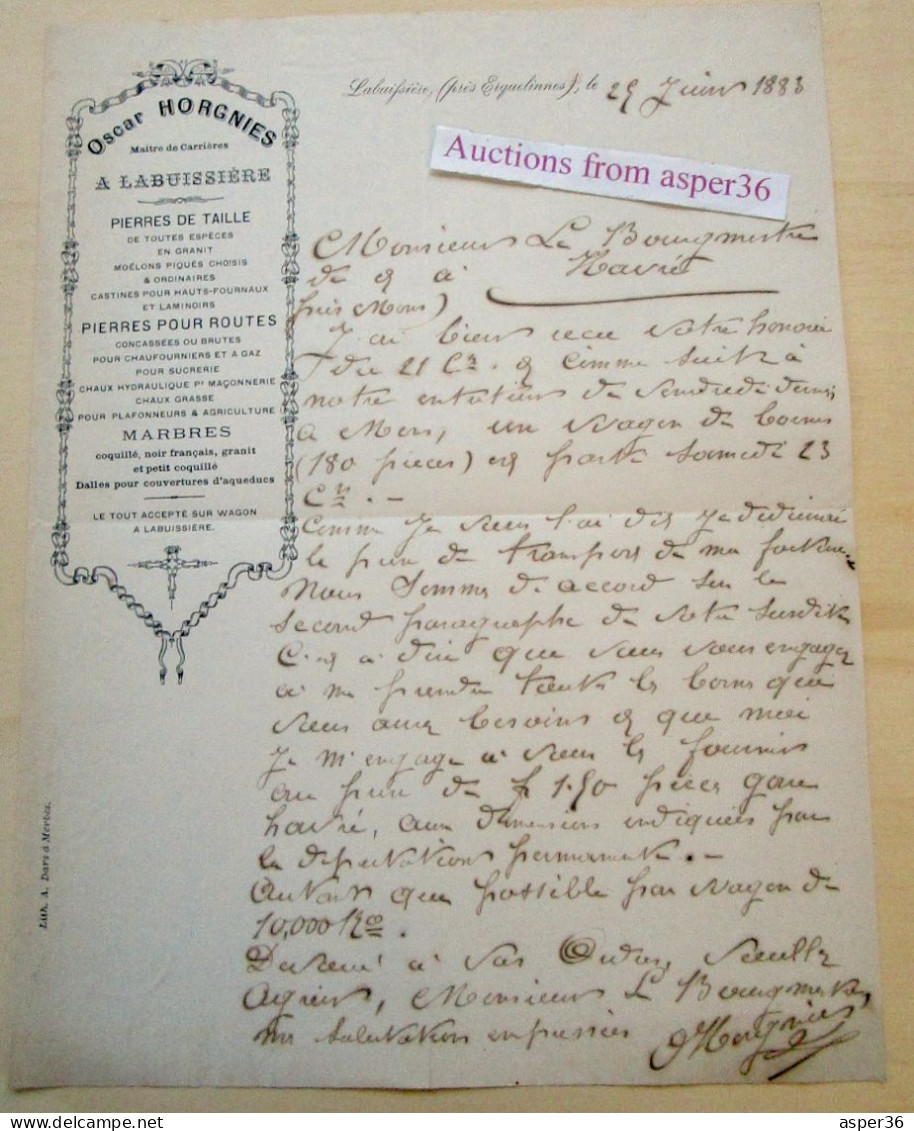 Oscar HORGNIES
Maître de Carrières
A LABUISSIÈRE
PIERRES DE TAILLE
DE TOUTES ESPÈCES
EN GRANIT
MOËLONS PIQUÉS CHOISIS
& ORDINAIRES
CASTINES POUR HAUTS-FOURNAUX
ET LAMINOIRS
PIERRES POUR ROUTES
CONCASSÉES OU BRUTES
POUR CHAUFOURNIERS ET A GAZ
POUR SUCRERIE
CHAUX HYDRAULIQUE Pr MAÇONNERIE
CHAUX GRASSE
POUR PLAFONNEURS & AGRICULTURE
MARBRES
coquillé, noir français, granit
et petit coquillé
Dalles pour couvertures d'aqueducs
LE TOUT ACCEPTÉ SUR WAGON
A LABUISSIÈRE.
Lith. A. Dars à Merbes.
Labuissière, (près Erquelinnes), le 25 Juin 1883
Auctions from asper36
Monsieur Le Bourgmestre
de & à Havré
près Mons)
J'ai bien recu votre honorée
du 21 Ct. & comme suite à
notre entretien de vendredi dernier
a Mons, un wagon de bornes
(180 pièces) est parti samedi 23
Ct. -
Comme je vous l'ai dit je déduirai
le prix de transport de ma facture
Nous sommes de accord sur le
second paragraphe de votre susdite
C'est à dire que vous vous engagez
à me prendre toutes les bornes que
vous aurez besoins & que moi
je m'engage à vous les fournir
au prix de f 1.50 pièces gare
havré, aux dimensions indiquées par
la députation permanente. -
Autant que possible par wagon de
10,000 Ko.
Dévoué à vos Ordres, veuillez
Agréer, Monsieur Le Bourgmestre,
mes salutations empressées
O Horgnies
asper36
asper36